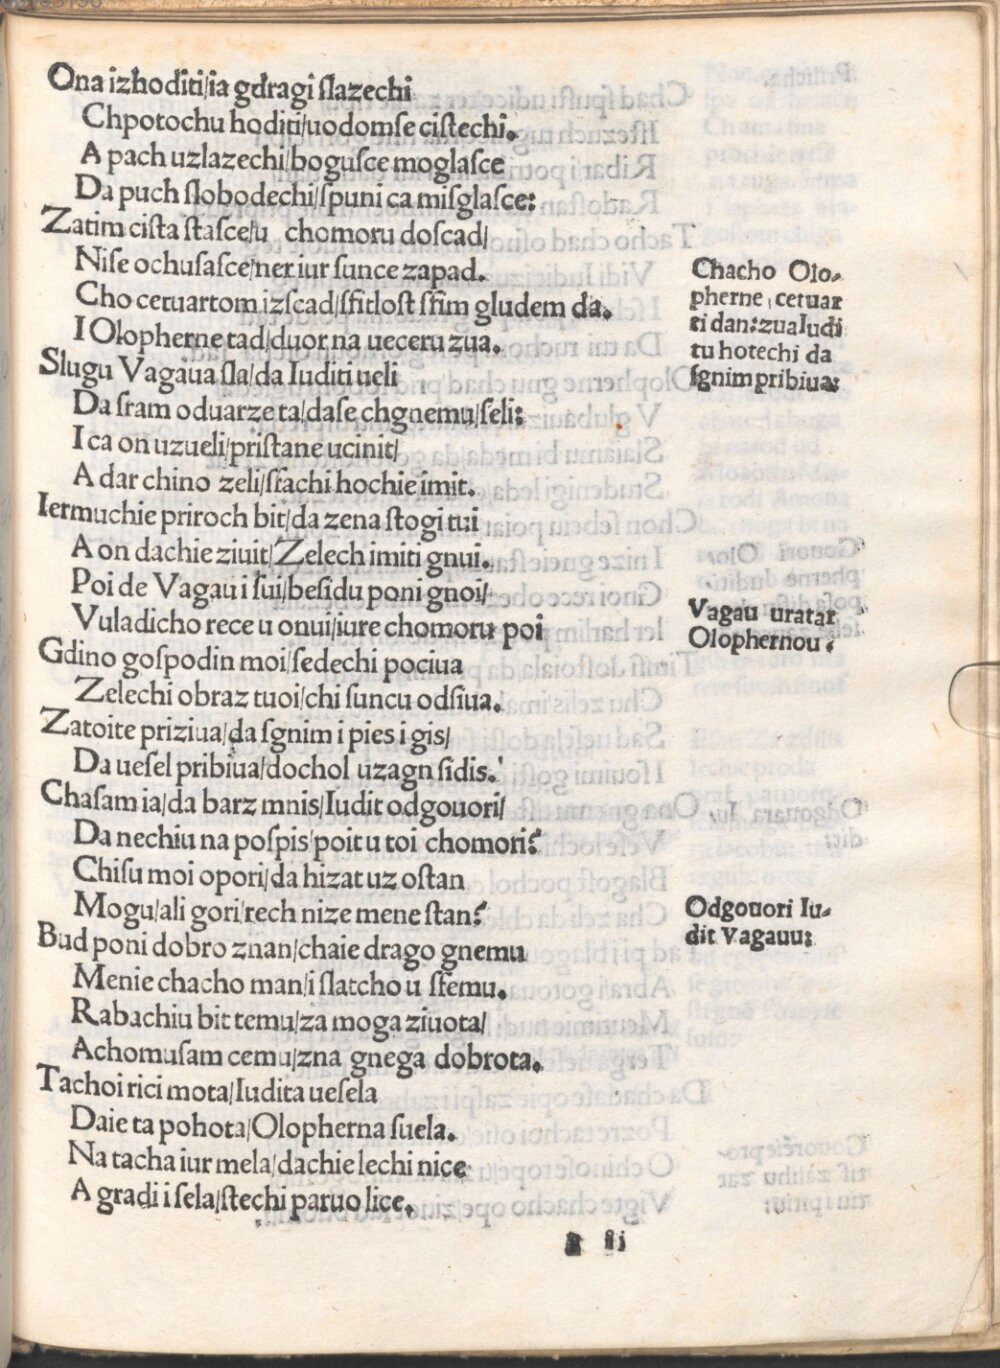 Ona izhoditi/ia gdragi ſlazechi
Chpotochu hoditi/uodomſe ciſtechi.
A pach uzlazechi/boguſce moglaſce
Da puch ſlobodechi/ſpuni ca miſglaſce:
Zatim ciſta ſtaſce/u chomoru doſcad/
Niſe ochuſaſce/ner iur ſunce zapad.
Cho cetuartom izſcad/ſfitloſt ſfim gludem da.
I Olopherne tad/duor na ueceru zua.
Chacho Olo-
pherne cetuar
ti dan:zua Iudi
tu hotechi da
ſgnim pribiua:
Slugu Vagaua ſla/da Iuditi ueli
Da ſram oduarze ta/daſe chgnemu/ſeli:
I ca on uzueli/priſtane ucinit/
A dar chino zeli/ſtachi hochie imit.
Iermuchie priroch bit/da zena ſtogi tui
A on dachie ziuit/Zelech imiti gnui.
Poi de Vagau i ſui/beſidu poni gnoi/
Vuladicho rece u onui/iure chomoru poi
Vagau uratar
Olophernou:
Gdino goſpodin moi/ſedechi pociua
Zelechi obraz tuoi/chi ſuncu odſiua.
Zatoite priziua/da ſgnim i pies i gis/
Da ueſel pribiua/dochol uzagn ſidis.
Chaſam ia/da barz mnis/Iudit odgouori/
Da nechiu na poſpis/poit u toi chomori:
Chiſu moi opori/da hizat uz oſtan
Mogu/ali gori/rech nize mene ſtan:
Odgouori Iu-
dit Vagauu:
Bud poni dobro znan/chaie drago gnemu
Menie chacho man/i ſlatcho u ſfemu.
Rabachiu bit temu/za moga ziuota/
Achomuſam cemu/zna gnega dobrota.
Tachoi rici mota/Iudita ueſela
Daie ta pohota/Olopherna ſuela.
Na tacha iur mela/dachie lechi nice
A gradi i ſela/ſtechi paruo lice.